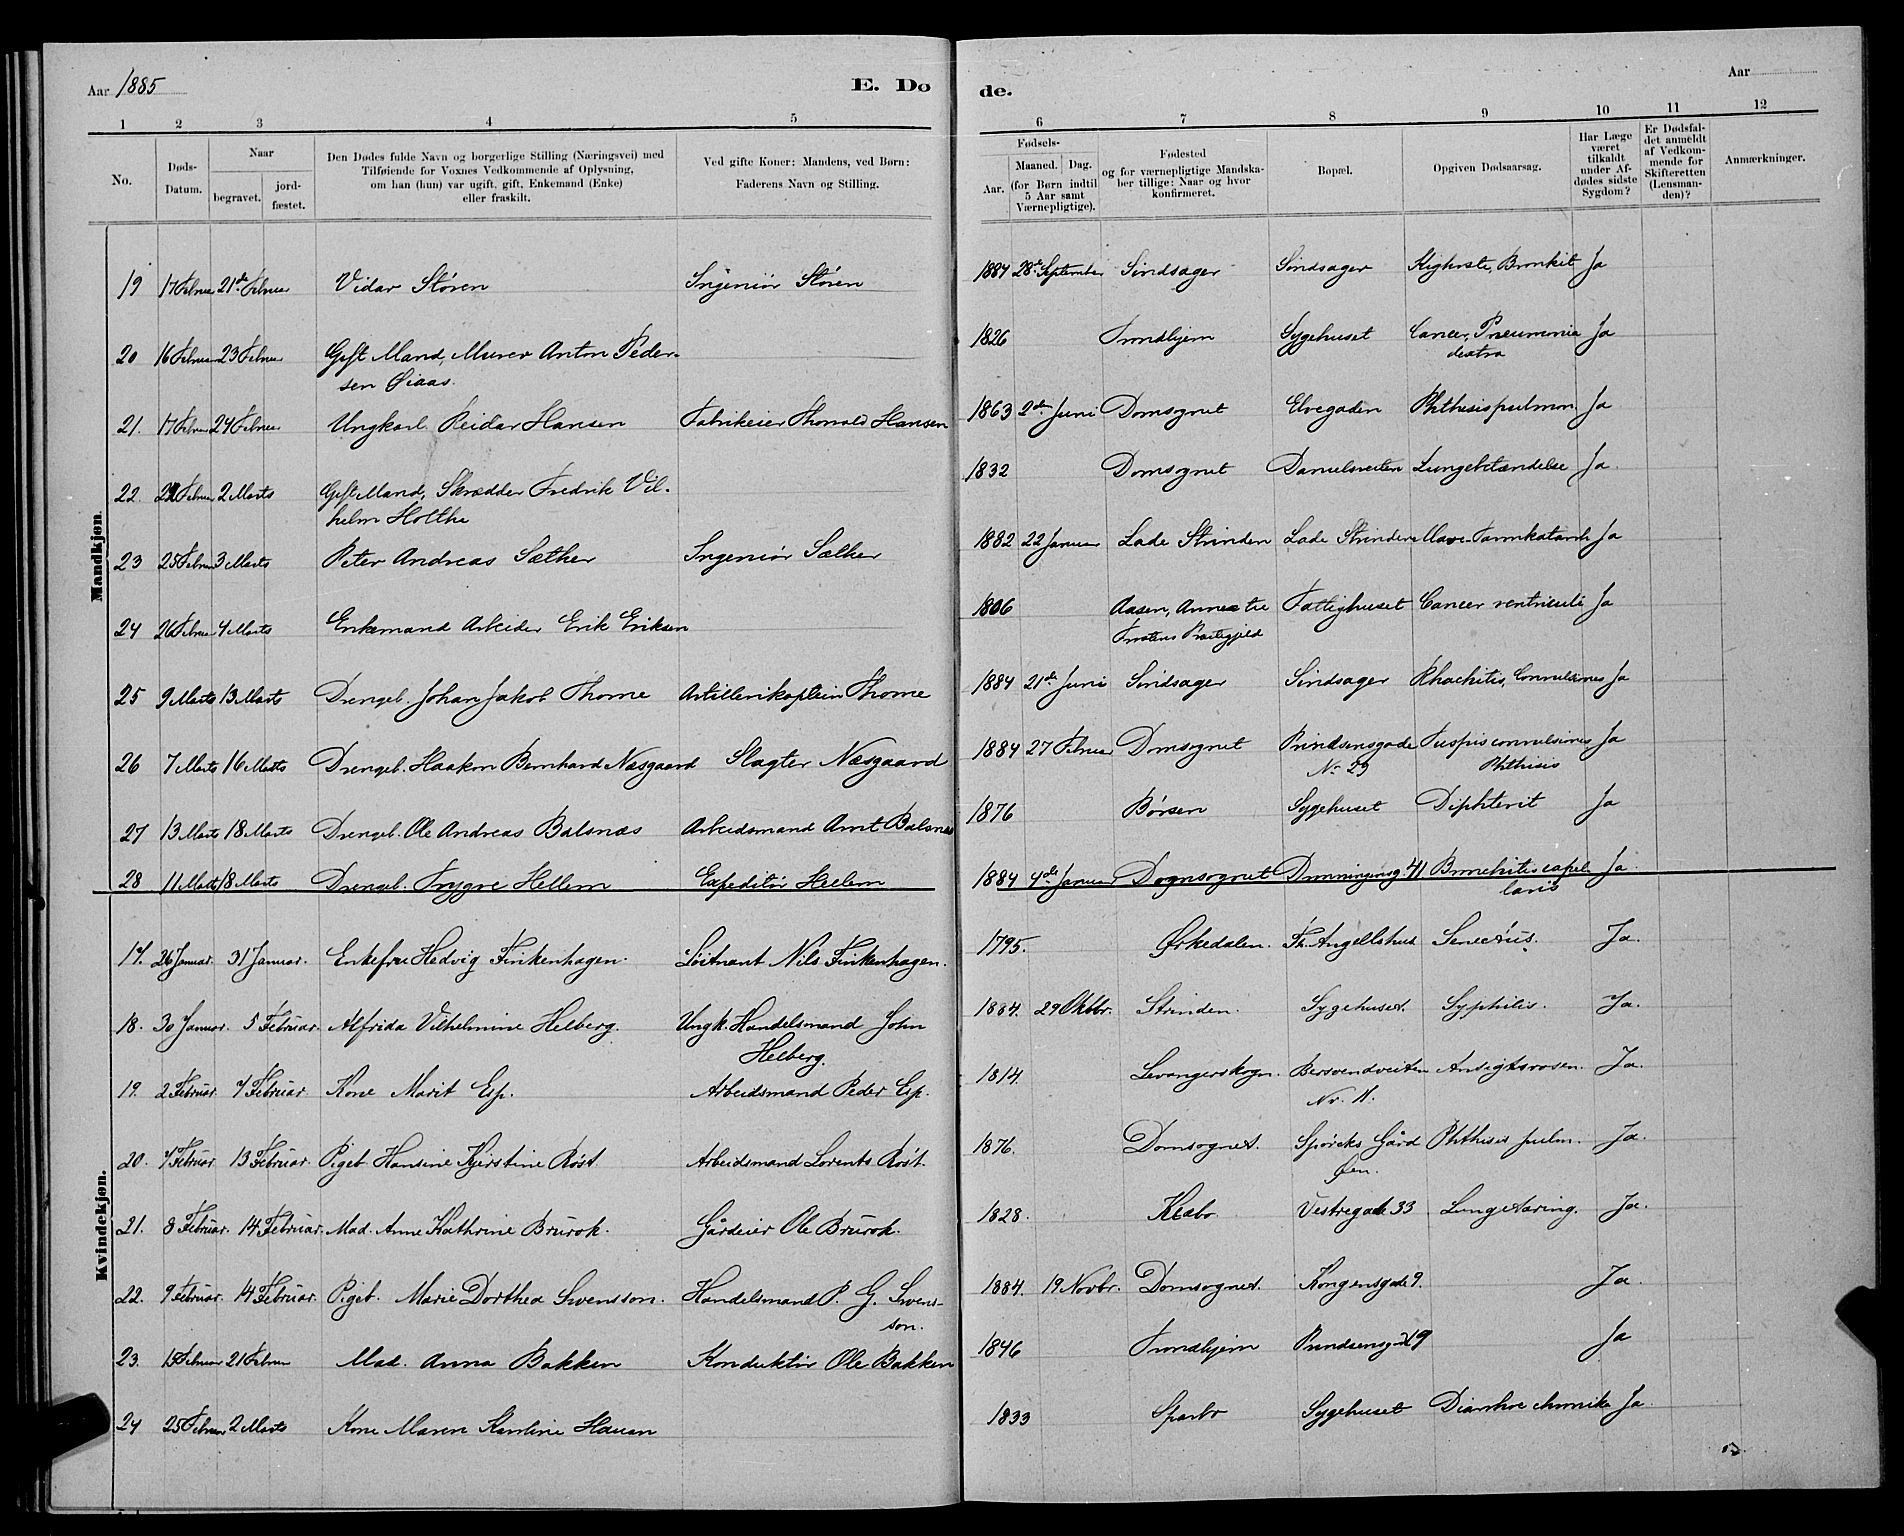 Aar 1885
E. Dø
de.
Aar
1 2 3 4 5
6 7 8 9 10 11 12
No.
Døds-
Datum.
Naar
begravet.
jord-
fæstet.
Den Dødes fulde Navn og borgerlige Stilling (Næringsvei) med
Tilføiende for Voxnes Vedkommende af Oplysning,
om han (hun) var ugift, gift, Enkemand (Enke)
eller fraskilt.
Ved gifte Koner: Mandens, ved Børn:
Faderens Navn og Stilling.
Fødsels-
Aar.
Maaned. Dag.
(for Børn indtil
5 Aar samt
Værnepligtige).
Fødested
og for værnepligtige Mandska-
ber tillige: Naar og hvor
konfirmeret.
Bopæl.
Opgiven Dødsaarsag.
Har Læge
været
tilkaldt
under Af-
dødes sidste
Sygdom?
Er Dødsfal-
det anmeldt
af Vedkom-
mende for
Skifteretten
(Lensman-
den)?
Anmærkninger.
Mandkjøn.
19 17 Februar 21de Februar Vidar Støren Ingeniør Støren 1884 28de September Sindsager Sindsager Kighoste, Bronkit Ja
20 16 Februar 23 Februar Gift Mand, Murer Anton Peder- 1826 Trondhjem Sygehuset Cancer, Pneumonia Ja
sen Øiaas. dextra
21. 17 Februar 24 Februar Ungkarl Reidar Hansen Fabrikeier Thorvald Hansen 1863 2den Juni Domsognet Elvegaden Phthisis pulmon. Ja
22 22 Februar 2 Marts Gift Mand, Skrædder Fredrik Vil- 1832 Domsognet Danielsveiten Lungebetændelse Ja.
helm Holthe
23 25 Februar 3 Marts Peter Andreas Sæther Ingeniør Sæther 1882 22 Januar Lade Strinden Lade Strinden Mave-Tarmkatarrh Ja
24 26 Februar 4 Marts Enkemand Arbeider Erik Eriksen 1806 Aasen, Annex til Fattighuset Cancer ventriculi Ja
Frostens Præstegjeld
25 9 Marts 13 Marts Drengeb. Johan Jakob Thorne Artillerikaptein Thorne 1884 21de Juni Sindsager Sindsager Rhachitis, Convulsiones Ja
26 7 Marts 16 Marts Drengeb. Haakon Bernhard Næsgaard Slagter Næsgaard 1884 27 Februar Domsognet Prindsensgade Tussis convulsiva Ja
No 29 Phthisis
27 13 Marts 18 Marts Drengeb. Ole Andreas Balsnæs Arbeidsmand Arnt Balsnæs 1876 Børsen Sygehuset Diphterit Ja
28 11 Marts 18 Marts Drengeb. Trygve Hellem Expeditør Hellem 1884 4de Januar Domsognet Dronningensg. 41 Bronchitis capil- Ja
laris
Kvindekjøn.
17. 26 Januar. 31 Januar. Enkefru Hedvig Finkenhagen. Løitnant Nils Finkenhagen. 1795. Ørkedalen. Th. Angellshus Senectus. Ja.
18. 30 Januar. 5 Februar. Alfrida Vilhelmine Helberg. Ungk. Handelsmand John 1884. 29 Oktbr. Strinden. Sygehuset. Syphilis. Ja.
Helberg.
19. 2 Februar. 7 Februar. Kone Marit Esp. Arbeidsmand Peder Esp. 1814. Levangerskogn. Bersvendveiten Ansigtsrosen. Ja.
Nr. 11.
20. 7 Februar. 13 Februar. Pigeb. Hansine Kjerstine Røst. Arbeidsmand Lorents Røst. 1876. Domsognet. Spørcks Gård Phthisis pulm. Ja.
Øen.
21. 8 Februar. 14 Februar. Mad. Anne Kathrine Brurok. Gårdeier Ole Brurok. 1828. Klæbo Vestregade 33 Lungetæring. Ja.
22. 9 Februar. 14 Februar. Pigeb. Marie Dorthea Swensson. Handelsmand P. G. Swens- 1884. 19 Novbr. Domsognet. Kongensgade 9. Ja.
son.
23. 15 Februar 21 Februar Mad. Anna Bakken Konduktør Ole Bakken 1846 Trondhjem Prindsensgd 19 Ja
24 25 Februar 2 Marts Kone Maren Karoline Hauan 1833 Sparbo Sygehuset Diarrhoe chronika Ja